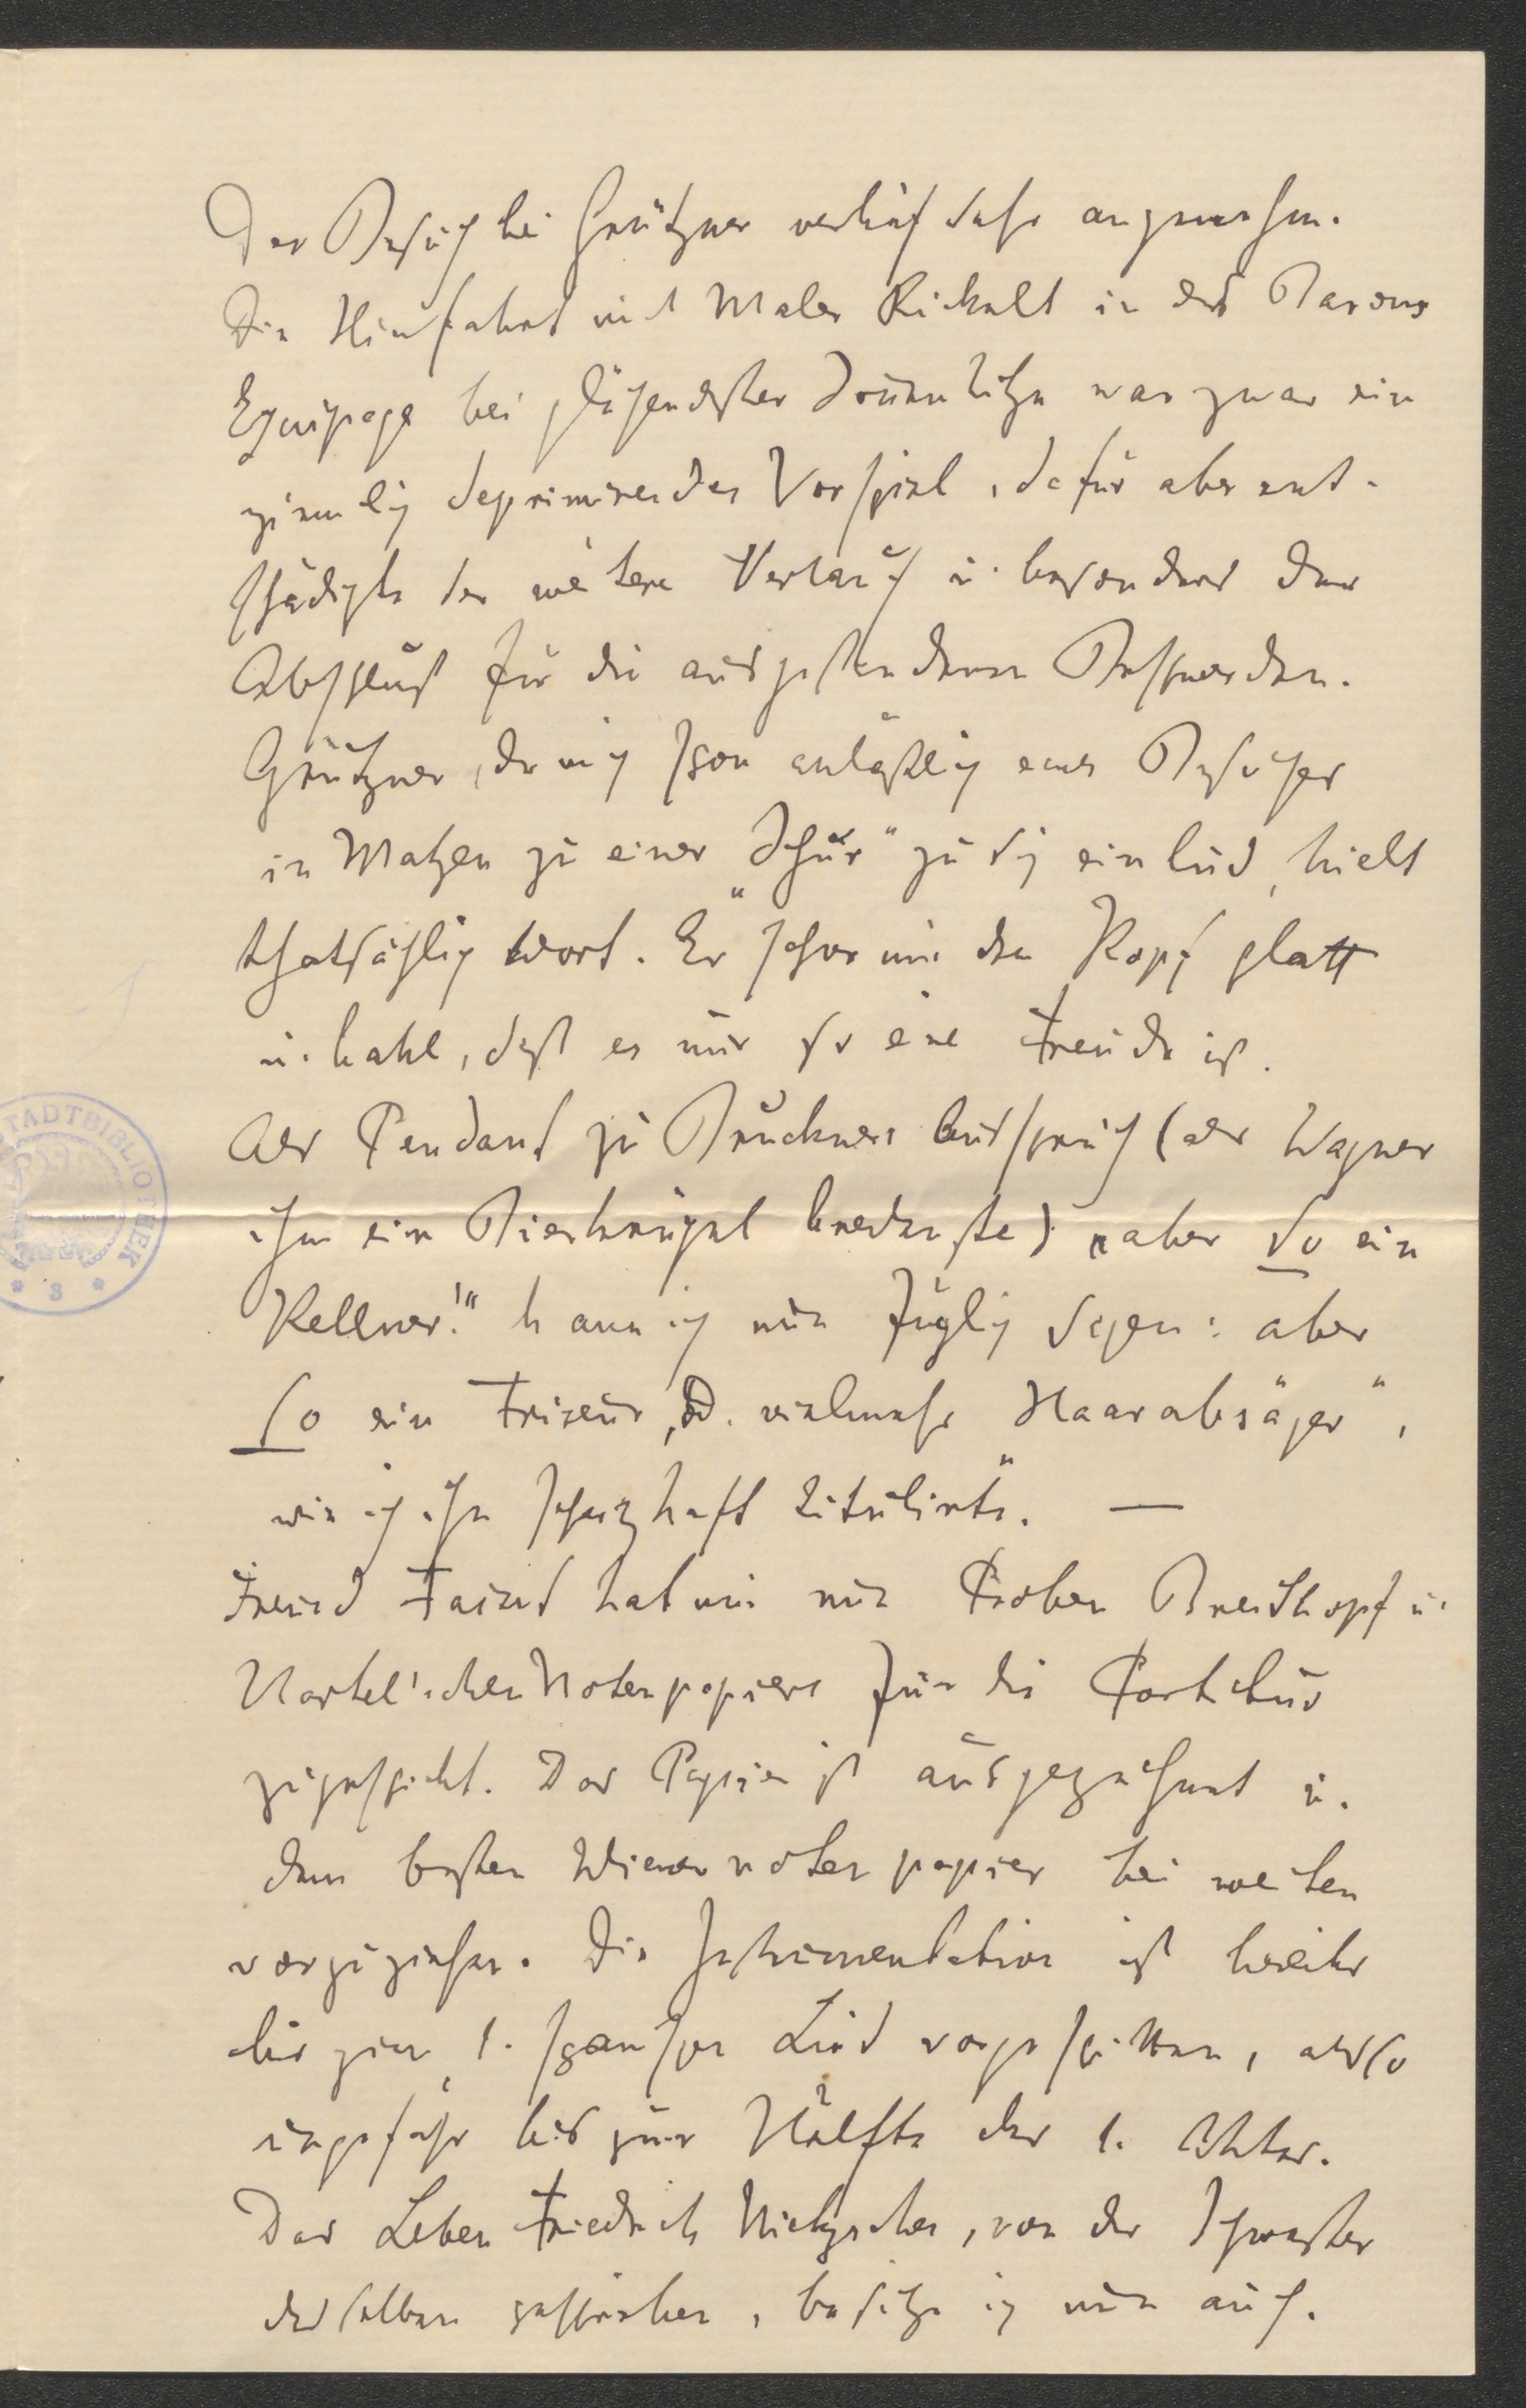 Der Besuch bei Grützner verlief sehr angenehm.
Die Hinfahrt mit Maler Rickelt in des Barons
Equipage bei glühendster Sonnenhitze war zwar ein
ziemlich deprimirendes Vorspiel, dafür aber ent-
schädigte der weitere Verlauf u. besonders der
Abschluß für die ausgestandenen Beschwerden.
Grützner, der mich schon anläßlich eines Besuches
in Matzen zu einer „Schur“ zu sich einlud, hielt
thatsächlich Wort. Er „schor mir den Kopf glatt
u. kahl, daß es nur so eine Freude ist.
Als Pendant zu Bruckners Ausspruch (als Wagner
ihm ein Bierkrügel kredenzte) „aber so ein
Kellner!“ kann ich nun füglich sagen: aber
so ein Friseur, od. vielmehr „Haarabsäger“,
wie ich ihn scherzhaft titulirte“. —
Freund Faisst hat mir nun Proben Breitkopf u.
Härtel'schen Notenpapiers für die Partitur
zugeschickt. Das Papier ist ausgezeichnet u.
dem besten Wiener notenpapier bei weitem
vorzuziehen. Die Instrumentation ist bereits
bis zum 1. spanischen Lied vorgeschritten, also
ungefähr bis zur Hälfte des 1. Aktes.
Das Leben Friedrich Nietzsches, von der Schwester
desselben geschrieben, besitze ich nun auch.
STADTBIBLIOTHEK
* 3 *